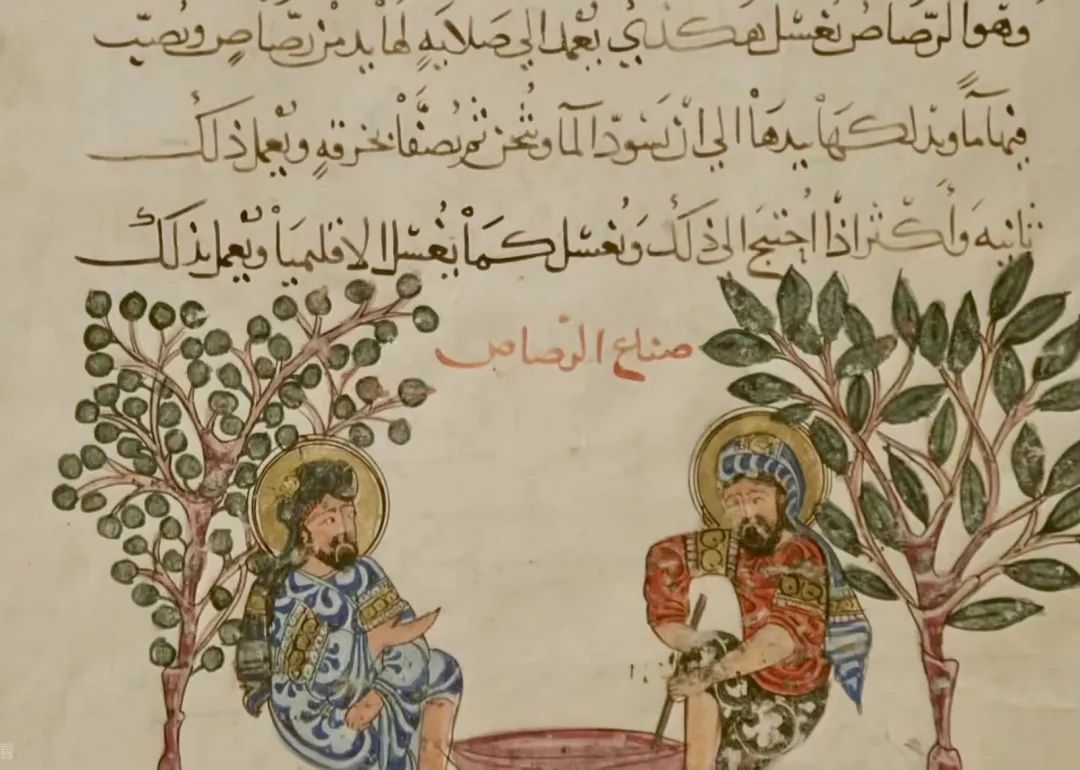 وهو الرصاص يغسل هكذي يعمد الي صلايه لها يد من رصاص ويصب
فيها ماً ويدلكها بيدها الي ان يسود الما ويثخن ثم يصفا بخرقه ويعمل ذلك
ثانيه وأكثر اذا احتيج الى ذلك ويغسل كما يغسل الاقليميا ويعمل بذلك
صناع الرصاص
看